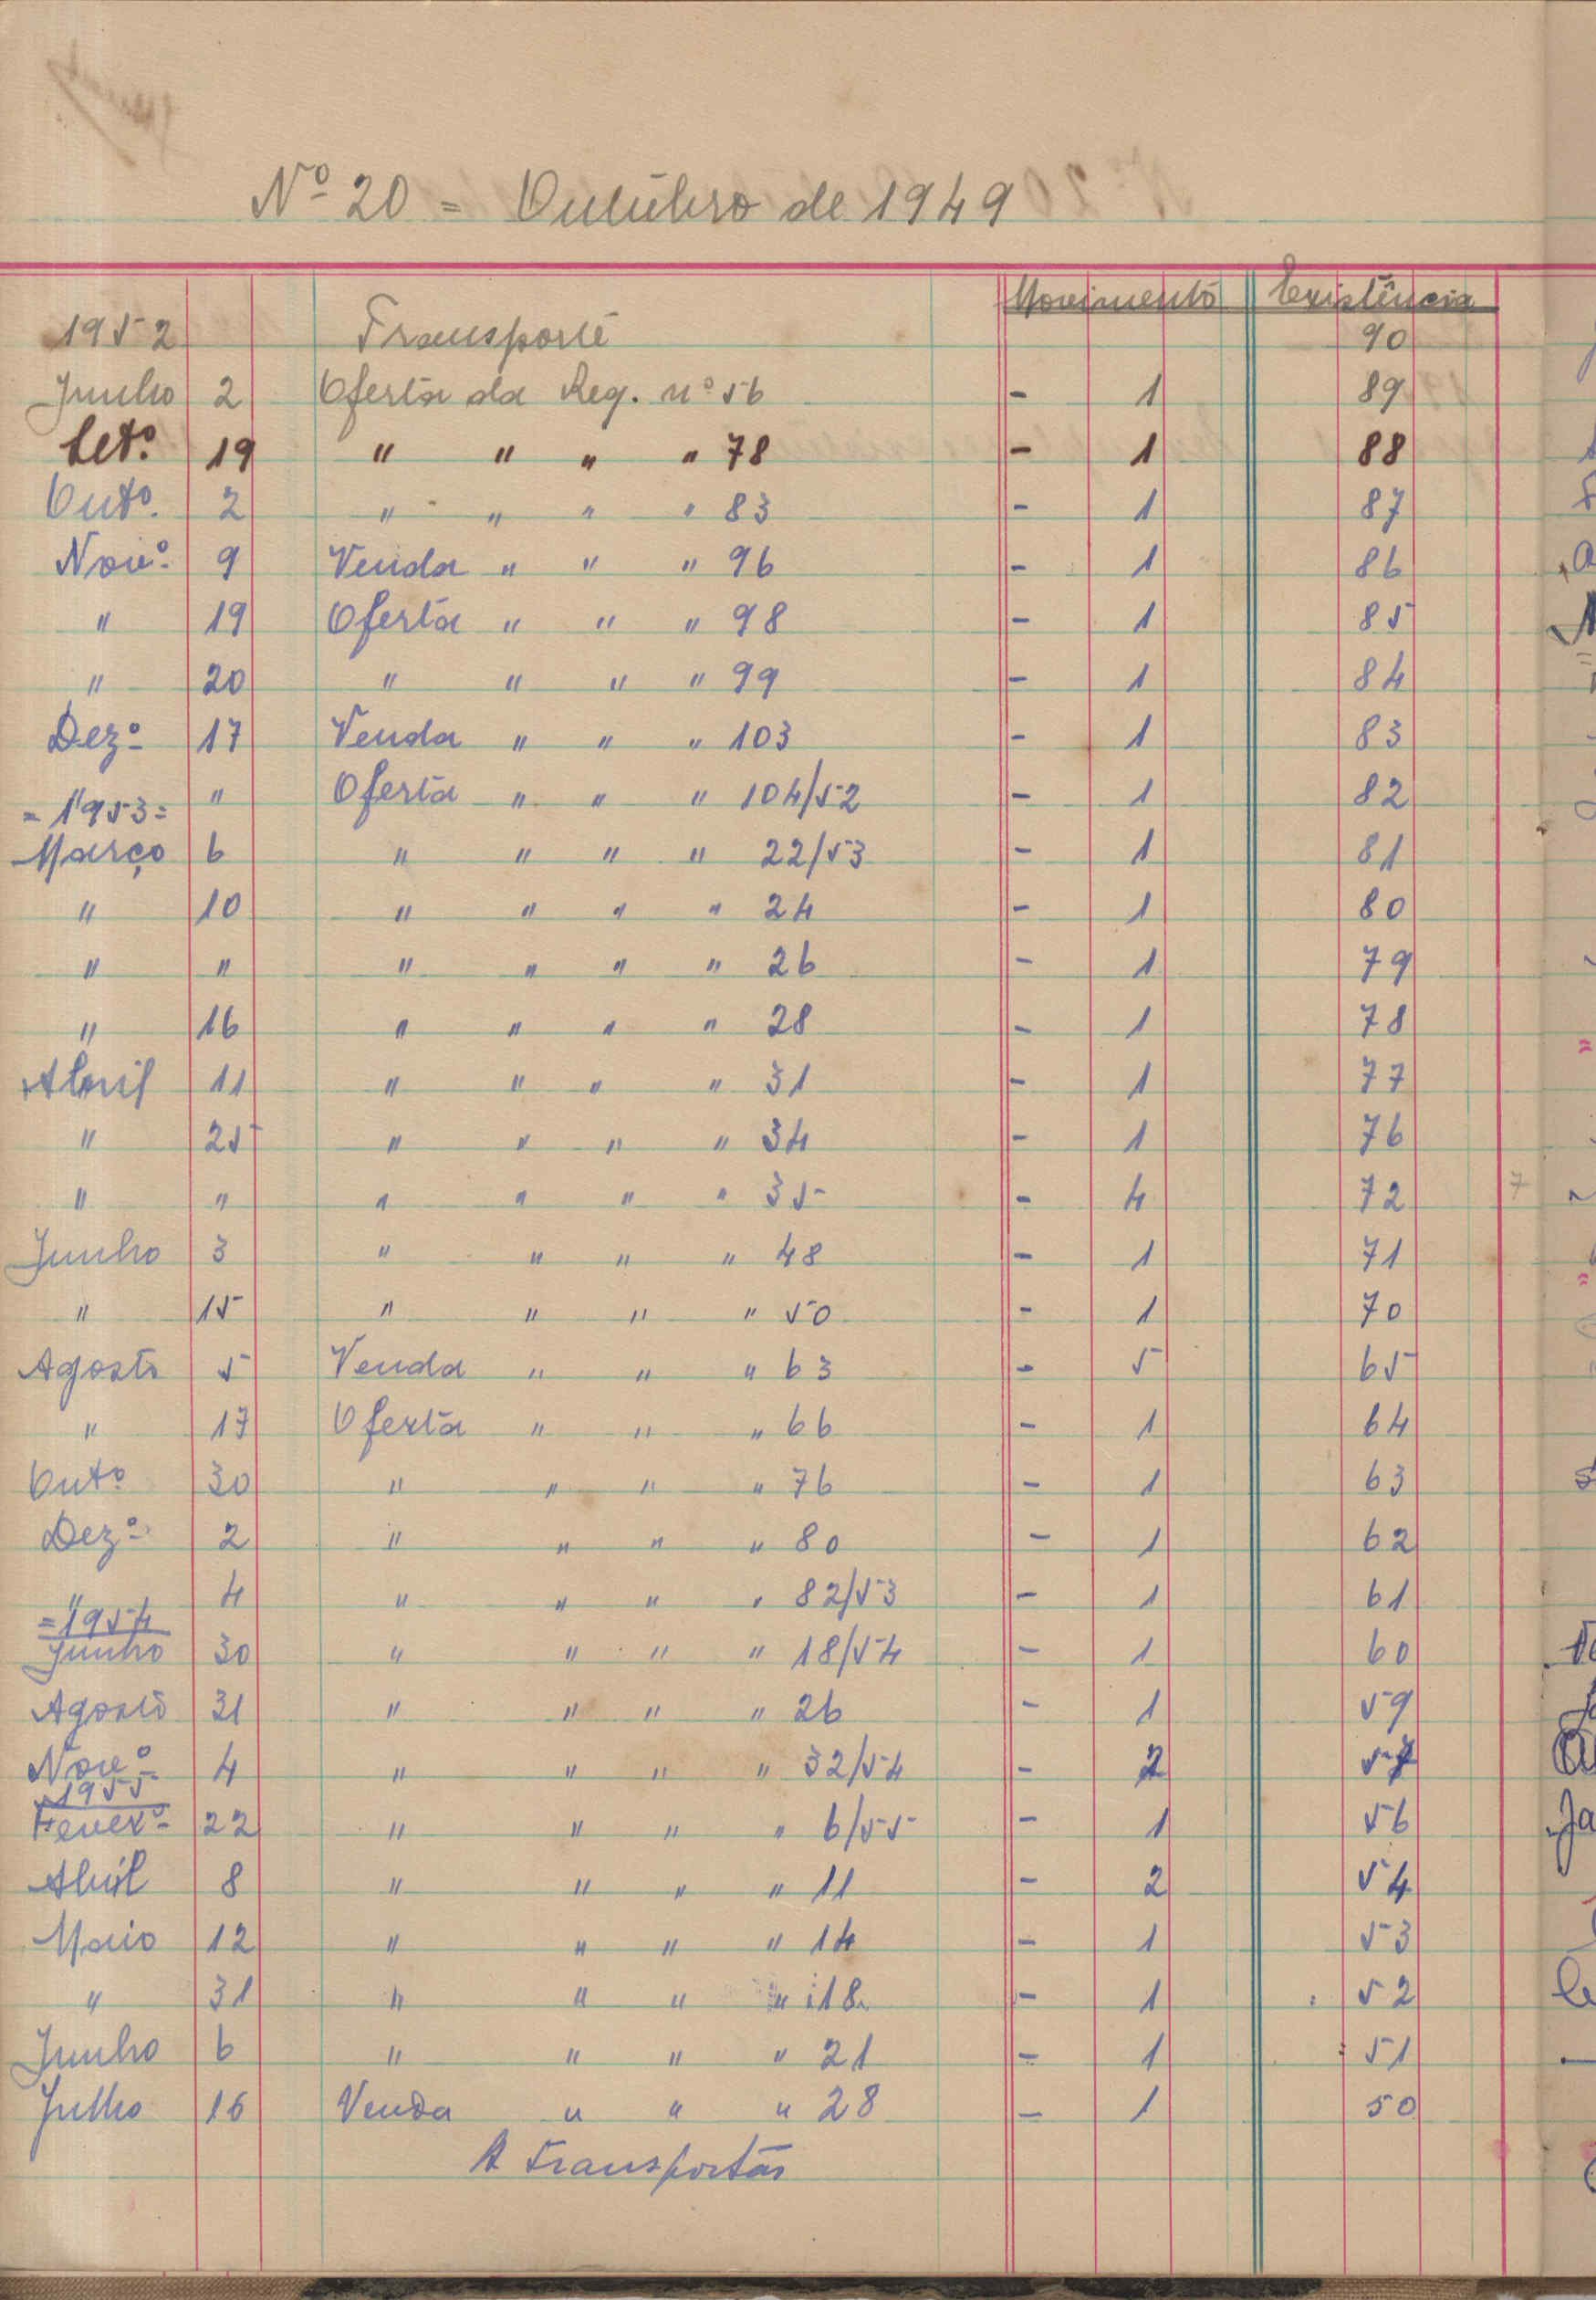 Nº 20 = Outubro de 1949
Movimento Existência
1952 Transporte 90
Junho 2 Oferta da Reg. nº 56 - 1 89
Setº 19 " " " " 78 - 1 88
Outº 2 " " " " 83 - 1 87
Novº 9 Venda " " " 96 - 1 86
" 19 Oferta " " " 98 - 1 85
" 20 " " " " 99 - 1 84
Dezº 17 Venda " " " 103 - 1 83
" " Oferta " " " 104/52 - 1 82
= 1953 =
Março 6 " " " " 22/53 - 1 81
" 10 " " " " 24 - 1 80
" " " " " " 26 - 1 79
" 16 " " " " 28 - 1 78
Abril 11 " " " " 31 - 1 77
" 25 " " " " 34 - 1 76
" " " " " " 35 - 4 72 7
Junho 3 " " " " 48 - 1 71
" 15 " " " " 50 - 1 70
Agosto 5 Venda " " " 63 - 5 65
" 17 Oferta " " " 66 - 1 64
Outº 30 " " " " 76 - 1 63
Dezº 2 " " " " 80 - 1 62
" 4 " " " " 82/53 - 1 61
= 1954
Junho 30 " " " " 18/54 - 1 60
Agosto 31 " " " " 26 - 1 59
Novº 4 " " " " 32/54 - 2 57
1955
Feverº 22 " " " " 6/55 - 1 56
Abril 8 " " " " 11 - 2 54
Maio 12 " " " " 14 - 1 53
" 31 " " " " 18 - 1 52
Junho 6 " " " " 21 - 1 51
Julho 16 Venda " " " 28 - 1 50
A Transportar